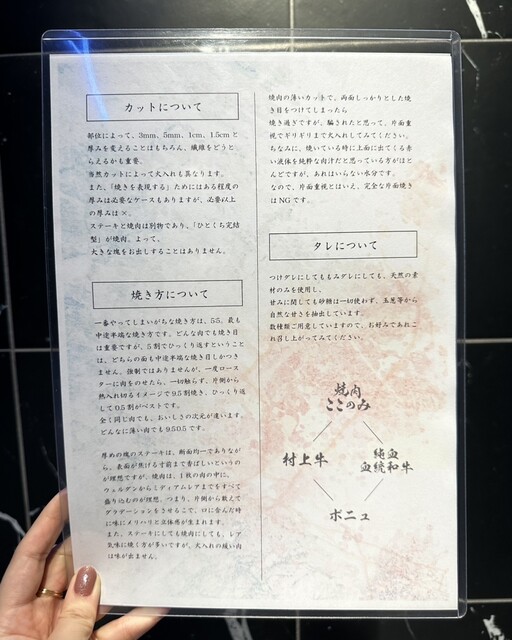 カットについて
部位によって、3mm、5mm、1cm、1.5cmと
厚みを変えることはもちろん、繊維をどうと
らえるかも重要。
当然カットによって火入れも異なります。
また、「焼きを表現する」ためにはある程度の
厚みは必要なケースもありますが、必要以上
の厚みは×。
ステーキと焼肉は別物であり、「ひとくち完結
型」が焼肉。よって、
大きな塊をお出しすることはありません。
焼き方について
一番やってしまいがちな方は、5:5。最も
中途半端な焼き方です。どんな肉でも焼き目
は重要ですが、5割でひっくり返すということ
は、どちらの面も中途半端な焼き目しかつき
ません。強制ではありませんが、一度ロース
ターに肉をのせたら、一切触らず、片側から
熱入れ切るイメージで9.5割焼き、ひっくり返
して0.5割がベストです。
全く同じ肉でも、おいしさの次元が違います。
どんなに薄い肉でも9.5:0.5です。
厚めの塊のステーキは、断面均一でありなが
ら、表面が焦げる寸前まで香ばしいというの
が理想ですが、焼肉は、1枚の肉の中に、
ウェルダンからミディアムレアまでをすべて
盛り込むのが理想。つまり、片側から敢えて
グラデーションをきせることで、口に含んだ時
に味にメリハリと立体感が生まれます。
また、ステーキにしても焼肉にしても、レア
気味に焼く方が多いですが、火入れの緩い肉
は味が出ません。
焼肉の薄いカットで、両面しっかりとした焼
き目をつけてしまったら
焼き過ぎですが、騙されたと思って、片面重
視でギリギリまで火入れしてみてください。
ちなみに、焼いている時に上面に出てくる赤
い液体を純粋な肉汁だと思っている方がほと
んどですが、あれはいらない水分です。
なので、片面重視とはいえ、完全な片面焼き
はNGです。
タレについて
つけダレにしてももみダレにしても、天然の素
材のみを使用し、
甘みに関しても砂糖は一切使わず、玉葱等から
自然な甘さを抽出しています。
数種類ご用意していますので、お好みであれこ
れ召し上がってみてください。
焼肉
ここのみ
村上牛
純血
血統和牛
ボニュ